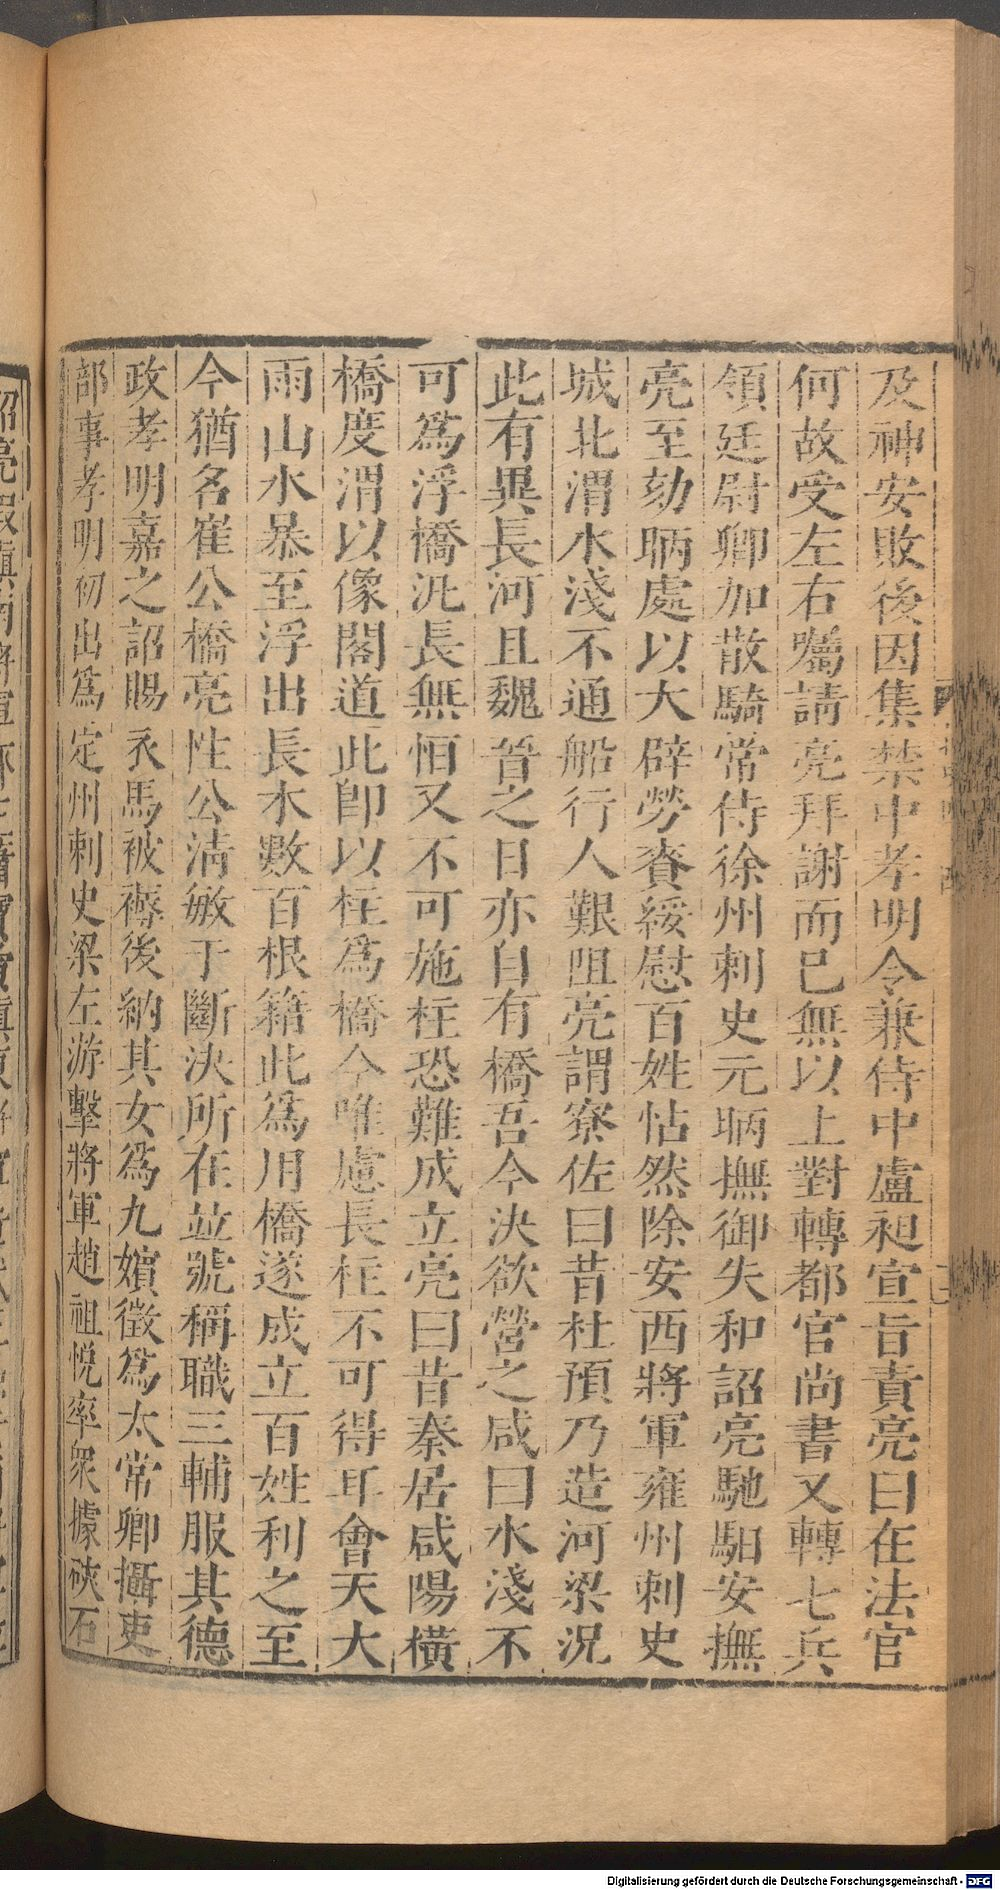 及神安敗後因集禁中孝明令兼侍中盧昶宣旨責亮曰在法官
何故受左右囑請亮拜謝而已無以上對轉都官尚書又轉七兵
領廷尉卿加散騎常侍徐州刺史元昞撫御失和詔亮馳馹安撫
亮至劾昞處以大辟勞賚綏慰百姓怗然除安西將軍雍州刺史
城北渭水淺不通船行人艱阻亮謂寮佐曰昔杜預乃造河梁况
此有異長河且魏晉之日亦自有橋吾今決欲營之咸曰水淺不
可爲浮橋汎長無恒又不可施柱恐難成立亮曰昔秦居咸陽橫
橋度渭以像閣道此即以柱爲橋今唯慮長柱不可得耳會天大
雨山水暴至浮出長木數百根籍此爲用橋遂成立百姓利之至
今猶名崔公橋亮性公淸敏于斷決所在並號稱職三輔服其德
政孝明嘉之詔賜衣馬被褥後納其女爲九嬪徵爲太常卿攝吏
部事孝明初出爲定州刺史梁左游擊將軍趙祖悅率衆據硤石
Digitalisierung gefördert durch die Deutsche Forschungsgemeinschaft - DFG